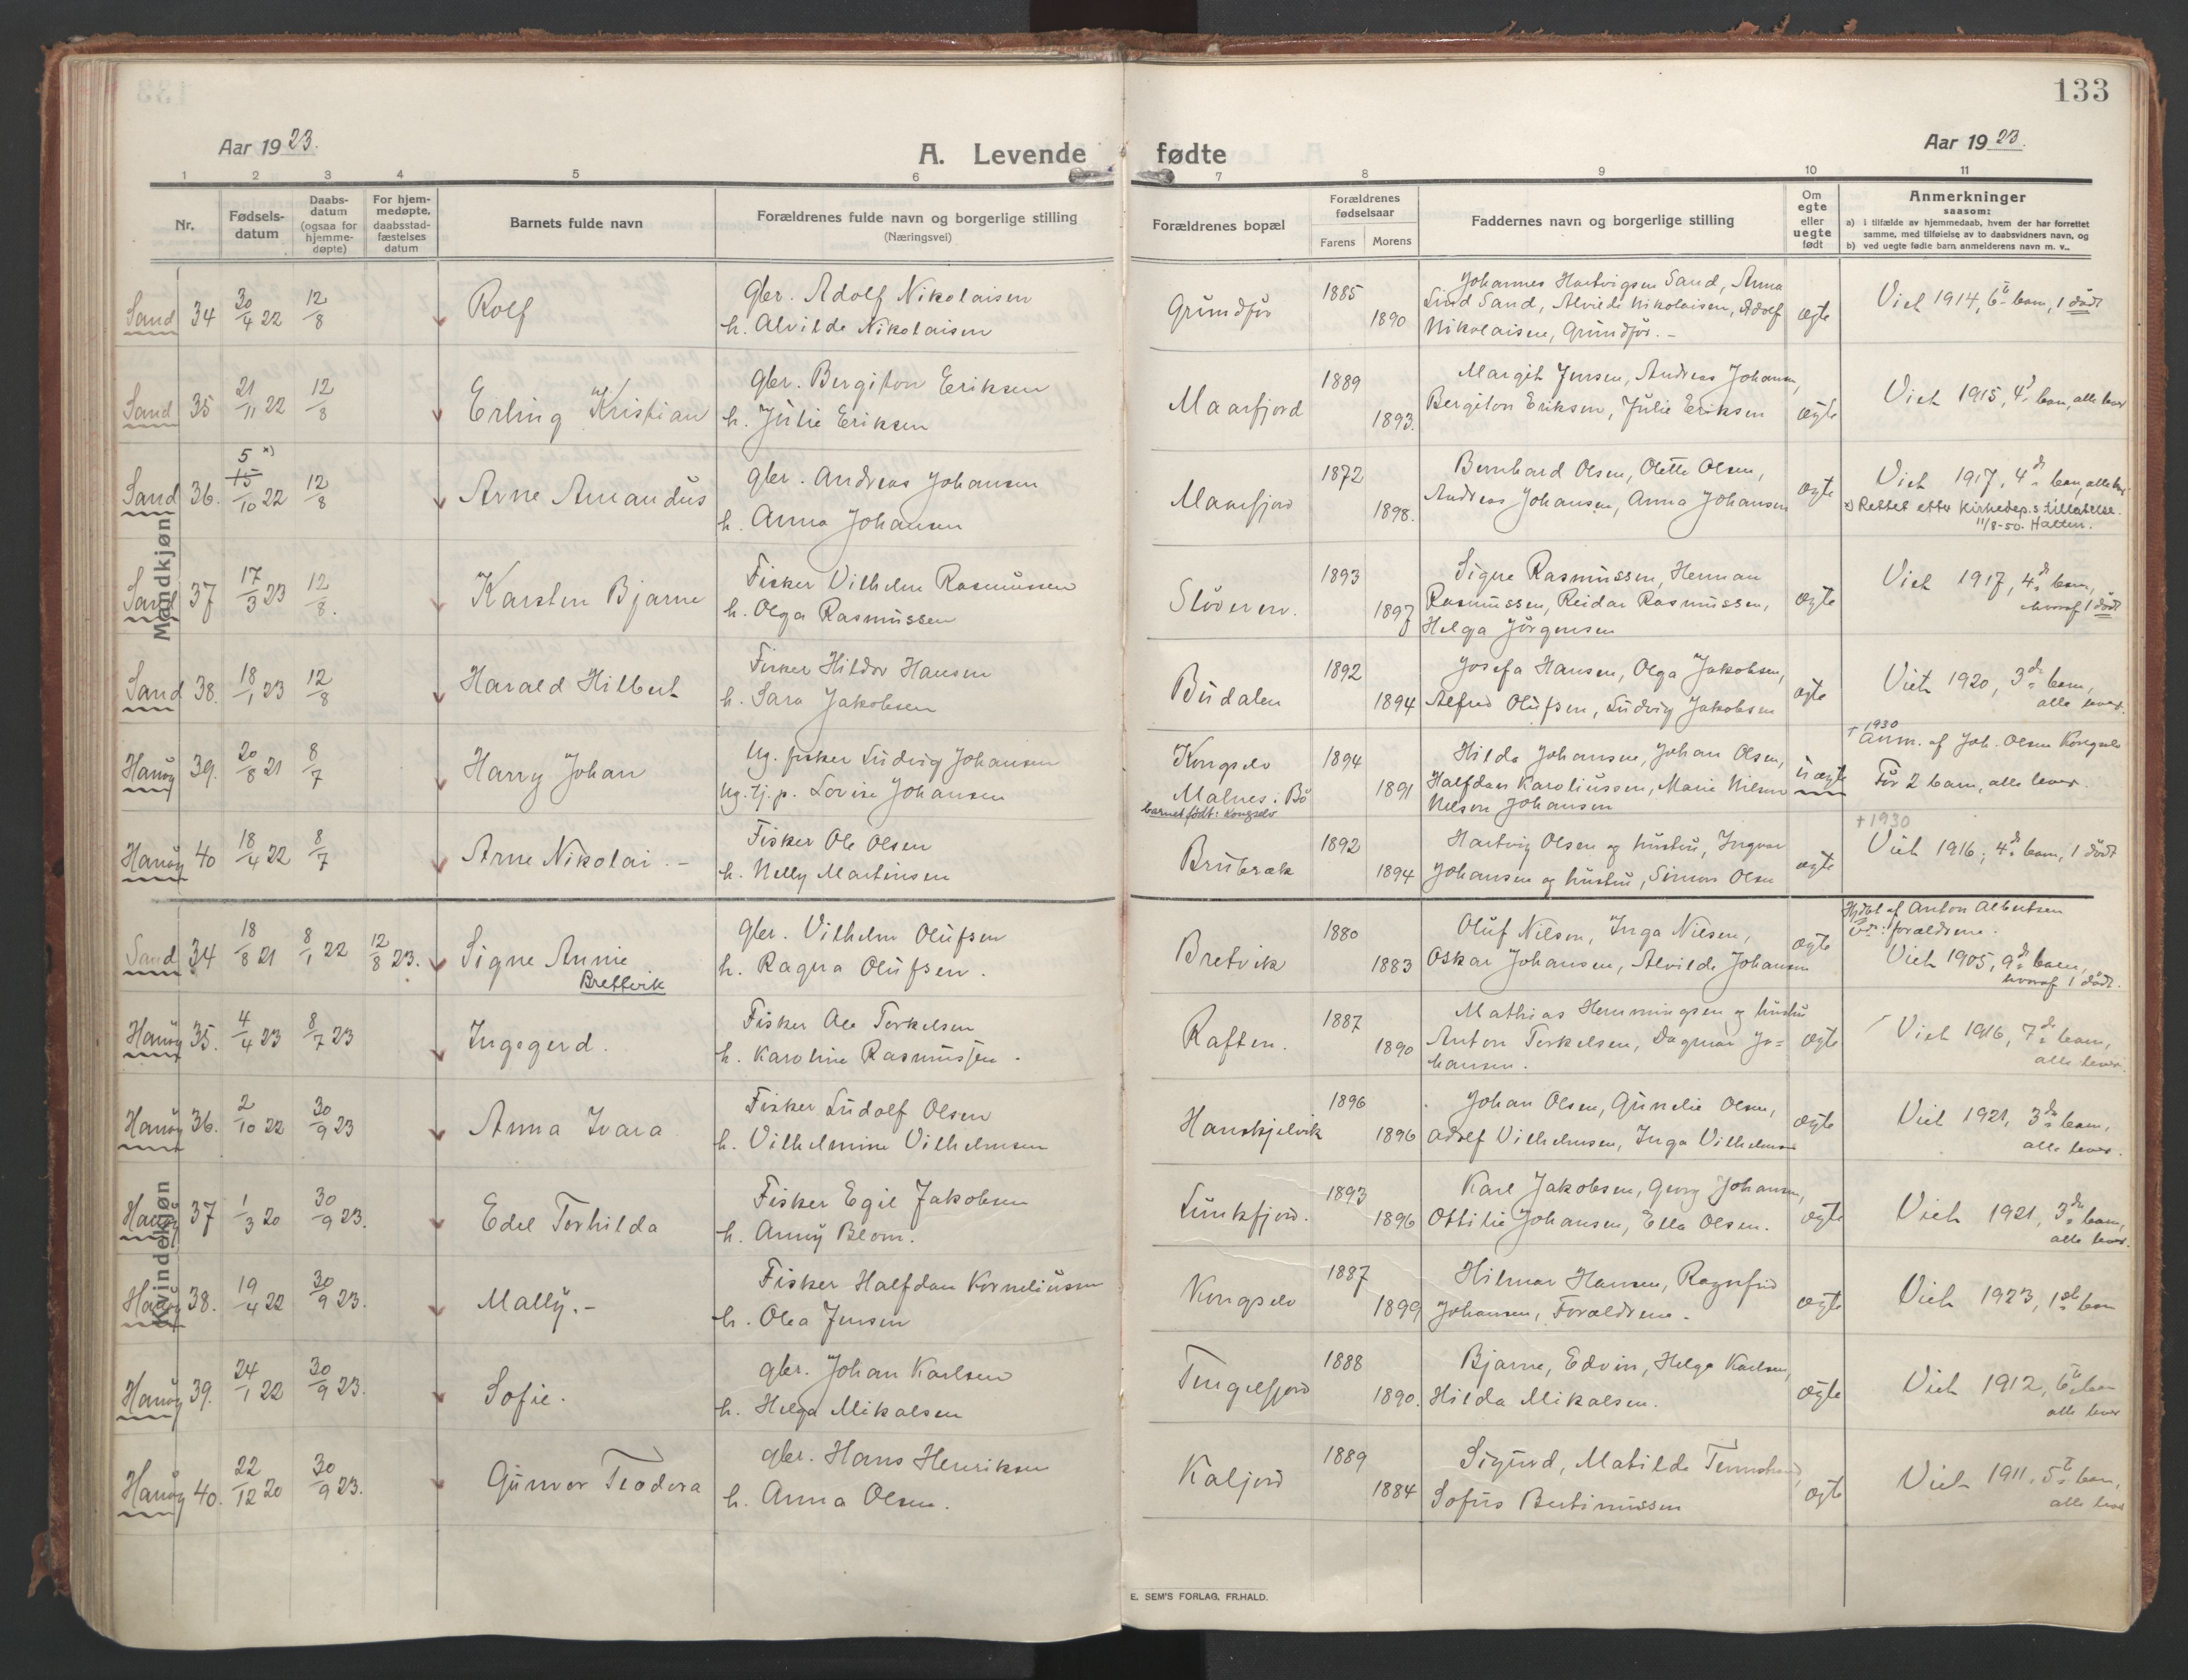 133
Aar 1923.
A. Levende fødte
Aar 1923.
1 2 3 4 5 6 7 8 9 10 11
Nr.
Fødsels-
datum
Daabs-
datum
(ogsaa for
hjemme-
døpte)
For hjem-
medøpte,
daabsstad-
fæstelses
datum
Barnets fulde navn
Forældrenes fulde navn og borgerlige stilling
(Næringsvei)
Forældrenes bopæl
Forældrenes
fødselsaar
Farens Morens
Faddernes navn og borgerlige stilling
Om
egte
eller
uegte
født
Anmerkninger
saasom:
a) i tilfælde av hjemmedaab, hvem der har forrettet
samme, med tilføielse av to daabsvidners navn, og
b) ved uegte fødte barn anmelderens navn m. v..
Mandkjøn
Sand 34 30/4 22 12/8 Rolf
gbr. Adolf Nikolaisen
h. Alvilde Nikolaisen
Grundfør 1885 1890
Johannes Hartvigsen Sand, Anna
Lind Sand, Alvilde Nikolaisen, Adolf
Nikolaisen, Grundfør. -
ægte
Viet 1914, 6te barn, 1 dödt
Sand 35 21/11 22 12/8 Erling Kristian
gbr. Bergiton Eriksen
h. Julie Eriksen
Maarfjord 1889 1893.
Margit Jensen, Andreas Johansen,
Bergiton Eriksen, Julie Eriksen
ægte
Viet 1915, 4. barn, alle lever
Sand 36. 5 x) 15/10 22 12/8 Arne Amandus
gbr. Andreas Johansen
h. Anna Johansen
Maarfjord 1872 1898.
Bernhard Olsen, Olette Olsen,
Andreas Johansen, Anna Johansen
ægte
Viet 1917, 4de barn, alle lever
x) Rettet etter Kirkedep.s tillatelse.
11/8-50. Hatten.
Sand 37 17/3 23 12/8. Karsten Bjarne
Fisker Vilhelm Rasmussen
h. Olga Rasmussen
Slöveren. 1893 1897
Signe Rasmussen, Herman
Rasmussen, Reidar Rasmussen,
Helga Jörgensen
ægte
Viet 1917, 4de barn,
hvoraf 1 dödt
Sand 38. 18/1 23 12/8 Harald Hilbert
Fisker Hildor Hansen
h. Sara Jakobsen
Budalen 1892 1894
Josefa Hansen, Olga Jakobsen,
Alfred Olufsen, Ludvig Jakobsen
ægte
Viet 1920, 3de barn,
alle lever.
Hanöy 39. 20/8 21 8/7 Harry Johan
Ug. fisker Ludvig Johansen
Ug. tj. p. Lovise Johansen
Kongselv
Malnes i Bö
barnet født i Kongselv
1894 1891
Hilda Johansen, Johan Olsen,
Halfdan Karoliussen, Marie Nilsen
Nelson Johansen
uægte
† 1930
Anm. af Joh. Olsen Kongselv
Før 2 barn, alle lever.
Hanöy 40 18/4 22 8/7 Arne Nikolai. -
Fisker Ole Olsen
h. Nelly Martinsen
Brubræk 1892 1894
Hartvig Olsen og hustru, Ingvar
Johansen og hustru, Simon Olsen
ægte
+ 1930
Viet 1916, 4de barn, 1 dödt
Kvindekjøn
Sand 34 18/8 21 8/1 22 12/8 23. Signe Annie
Brettvik
gbr. Vilhelm Olufsen
h. Ragna Olufsen.
Bretvik 1880 1883
Oluf Nilsen, Inga Nilsen,
Oskar Johansen, Alvilde Johansen
ægte
Hjdbt af Anton Albertsen
forældrene.
Viet 1905, 9de barn,
hvoraf 1 dödt.
Hanöy 35. 4/4 23 8/7 23 Ingegerd.
Fisker Ole Torkelsen
h. Karoline Rasmussen.
Raften. 1887 1890
Mathias Hemmingsen og hustru
Anton Torkelsen, Dagmar Jo=
hansen.
ægte
Viet 1916, 7de barn,
alle lever.
Hanöy 36. 2/10 22 30/9 23 Anna Ivara
Fisker Ludolf Olsen
h. Vilhelmine Vilhelmsen
Hanskjelvik 1896 1896
Johan Olsen, Gunelie Olsen,
Adolf Vilhelmsen, Inga Vilhelmsen
ægte
Viet 1921, 3de barn,
alle lever.
Hanöy 37 1/3 20 30/9 23. Edel Torhilda
Fisker Egil Jakobsen
h. Anny Blom.
Lunkfjord. 1893 1896
Karl Jakobsen, Georg Johansen,
Ottilie Johansen, Ella Olsen.
ægte
Viet 1921, 3de barn,
alle lever.
Hanöy 38. 19/4 22 30/9 23. Mally. -
Fisker Halfdan Korneliussen
h. Olea Jensen
Kongselv 1887 1899
Hilmar Hansen, Ragnfrid
Johansen, Forældrene.
ægte
Viet 1923, 1ste barn
Hanöy 39. 24/1 22 30/9 23. Sofie.
gbr. Johan Karlsen
h. Helga Mikalsen
Tengelfjord 1888 1890.
Bjarne, Edvin, Helga Karlsen,
Hilda Mikalsen.
ægte
Viet 1912, 6te barn
alle lever
Hanöy 40. 22/12 20 30/9 23. Gunvor Teodora
gbr. Hans Henriksen
h. Anna Olsen.
Kaljord 1889 1884
Sigurd, Matilde Tennstrand,
Sofus Bertinussen
ægte
Viet 1911, 5te barn,
alle lever
E. SEM'S FORLAG, FR.HALD.